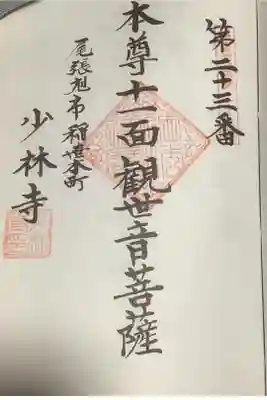 第二十三番
本尊十一面觀世音菩薩
尾張旭市稲葉本町
少林寺